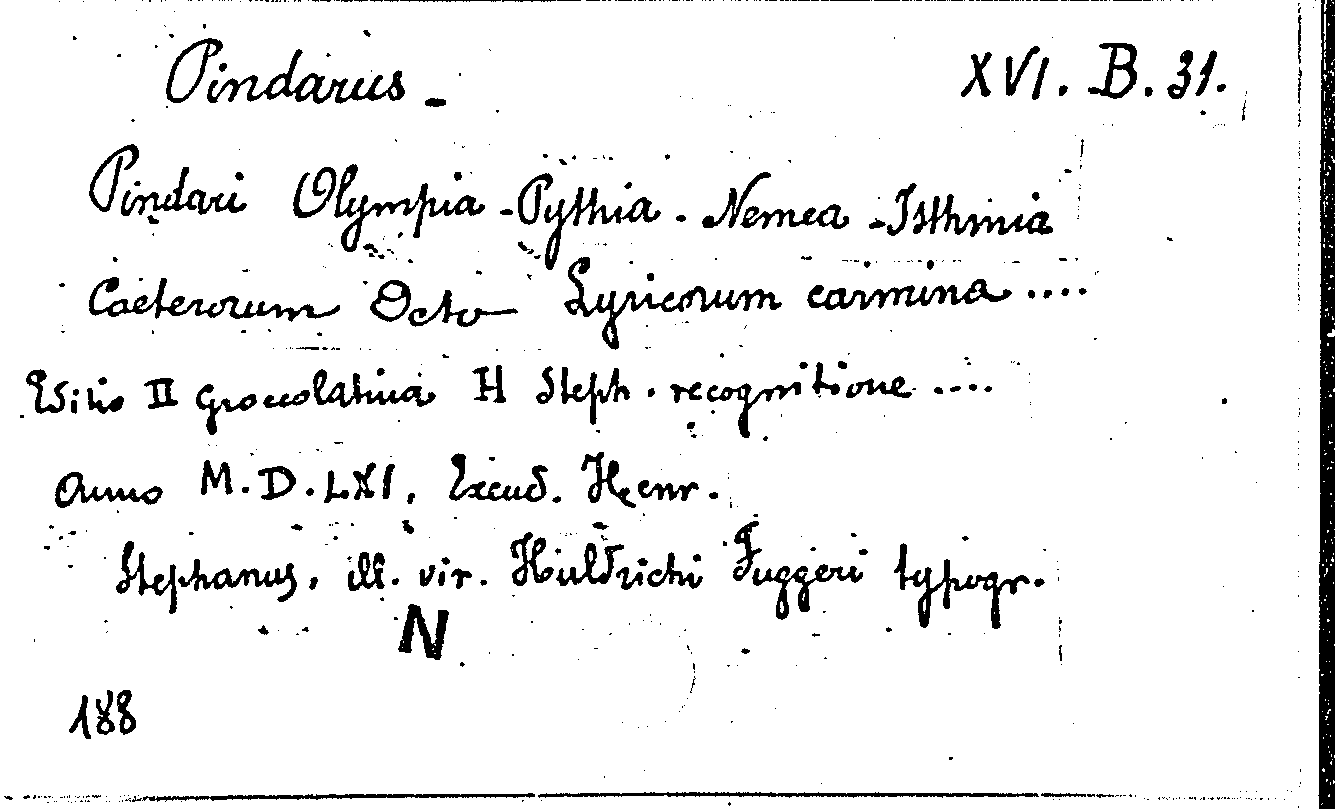 Pindarus - XVI. B. 31.
Pindari Olympia - Pythia - Nemea - Isthmia
Caeterorum Octo Lyricorum carmina ....
Editio II Graecolatina H Steph. recognitione ....
Anno M.D.LXI. Excud. Henr.
Stephanus, ill. vir. Huldrichi Fuggeri typogr.
N
188